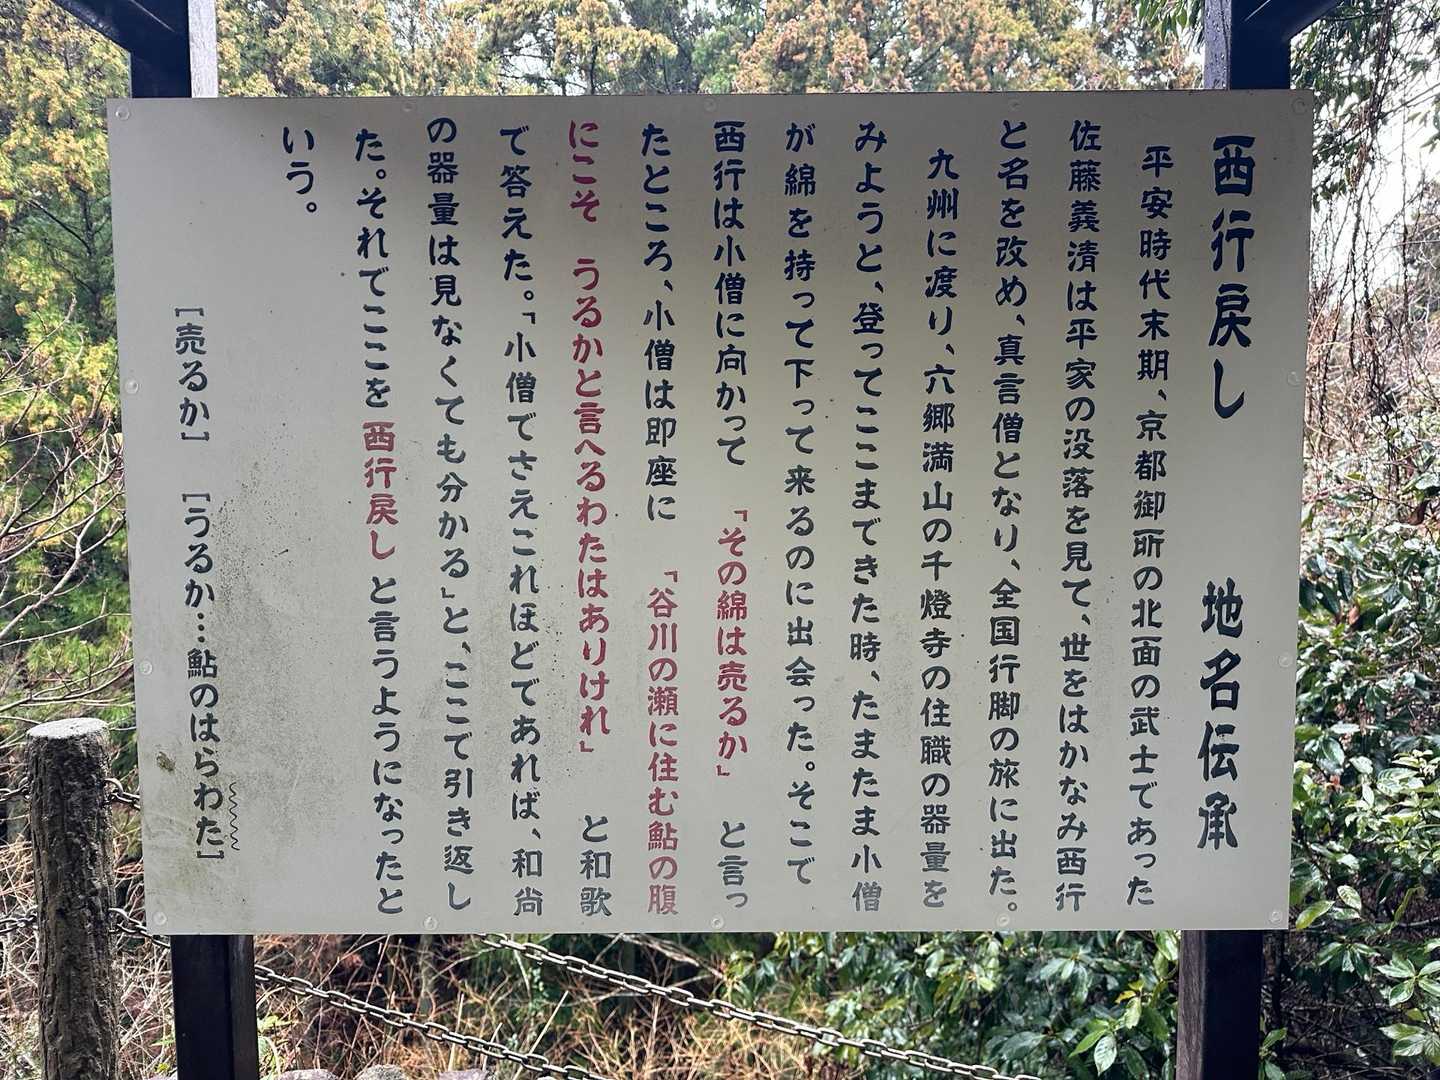 西行戻し　地名伝承
平安時代末期、京都御所の北面の武士であった
佐藤義清は平家の没落を見て、世をはかなみ西行
と名を改め、真言僧となり、全国行脚の旅に出た。
九州に渡り、六郷満山の千燈寺の住職の器量を
みようと、登ってここまできた時、たまたま小僧
が綿を持って下って来るのに出会った。そこで
西行は小僧に向かって　「その綿は売るか」　と言っ
たところ、小僧は即座に　「谷川の瀬に住む鮎の腹
にこそ　うるかと言へるわたはありけれ」　と和歌
で答えた。「小僧でさえこれほどであれば、和尚
の器量は見なくても分かる」と、ここで引き返し
た。それでここを 西行戻し と言うようになったと
いう。
［売るか］　［うるか…鮎のはらわた］